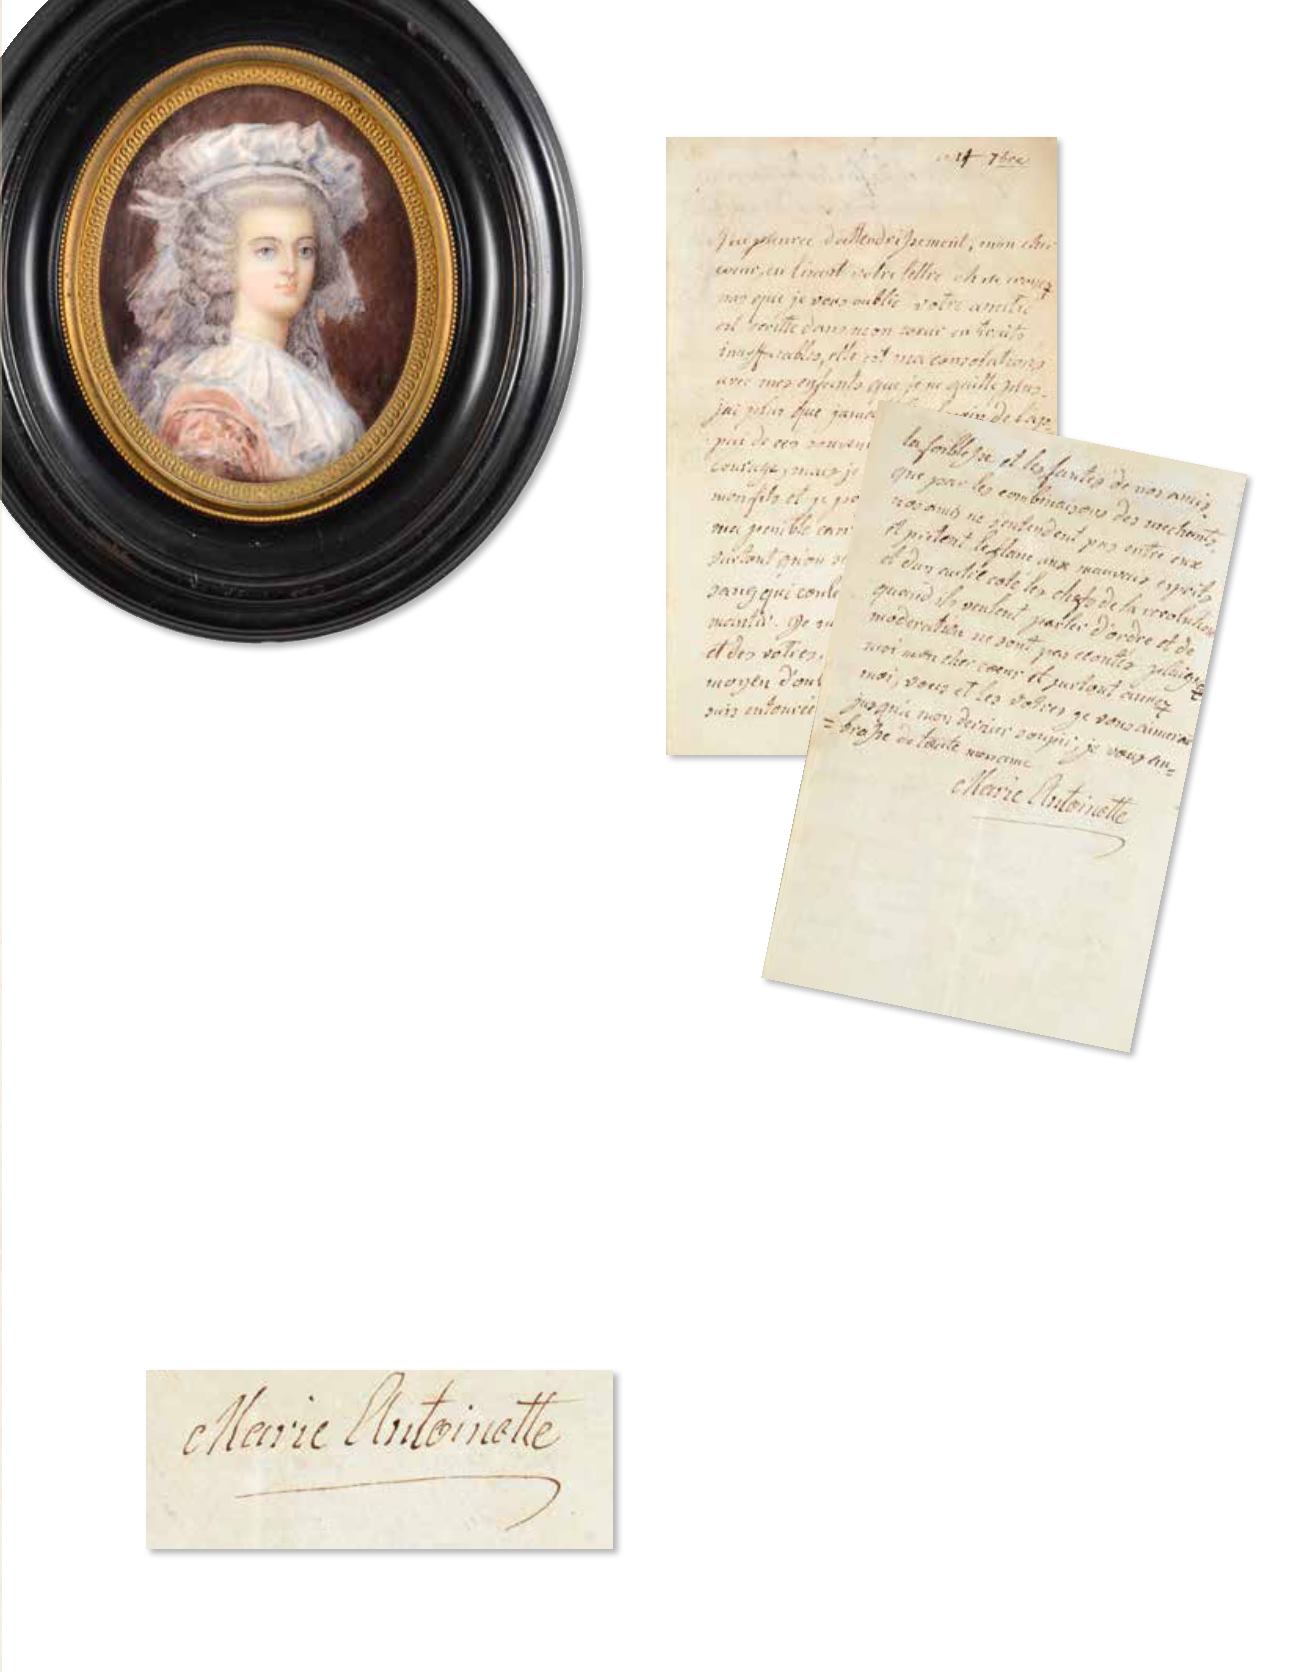 7bre
j'ai pleurée d'attendrissement, mon cher
coeur, en lisant votre lettre oh ne croyez
pas que je vous oublie votre amitié
est écritte dans mon coeur en traits
inneffacables, elle est ma consolations
avec mes enfants que je ne quitte plus.
jai plus que jamais
pui de ces souveni
courage, mais je
mon fils et je
ma penible carr
surtout qu'on
sang qui coule
mentir.
et des votres.
moyen d'ou
suis entourée
la foiblesse et les fautes de nos amis
que par les combinaisons des mechants,
nos amis ne s'entendent pas entre eux
et prêtent le flanc aux mauvais esprits
et d'un autre coté les chefs de la revolution
quand ils veulent parler d'ordre et de
moderation ne sont pas ecoutés plaignez
moi mon cher coeur et surtout aimez
moi, vous et les votres je vous aimerai
jusqu'a mon dernier soupir, je vous em=
=brasse de toute mon ame
Marie Antoinette
Marie Antoinette